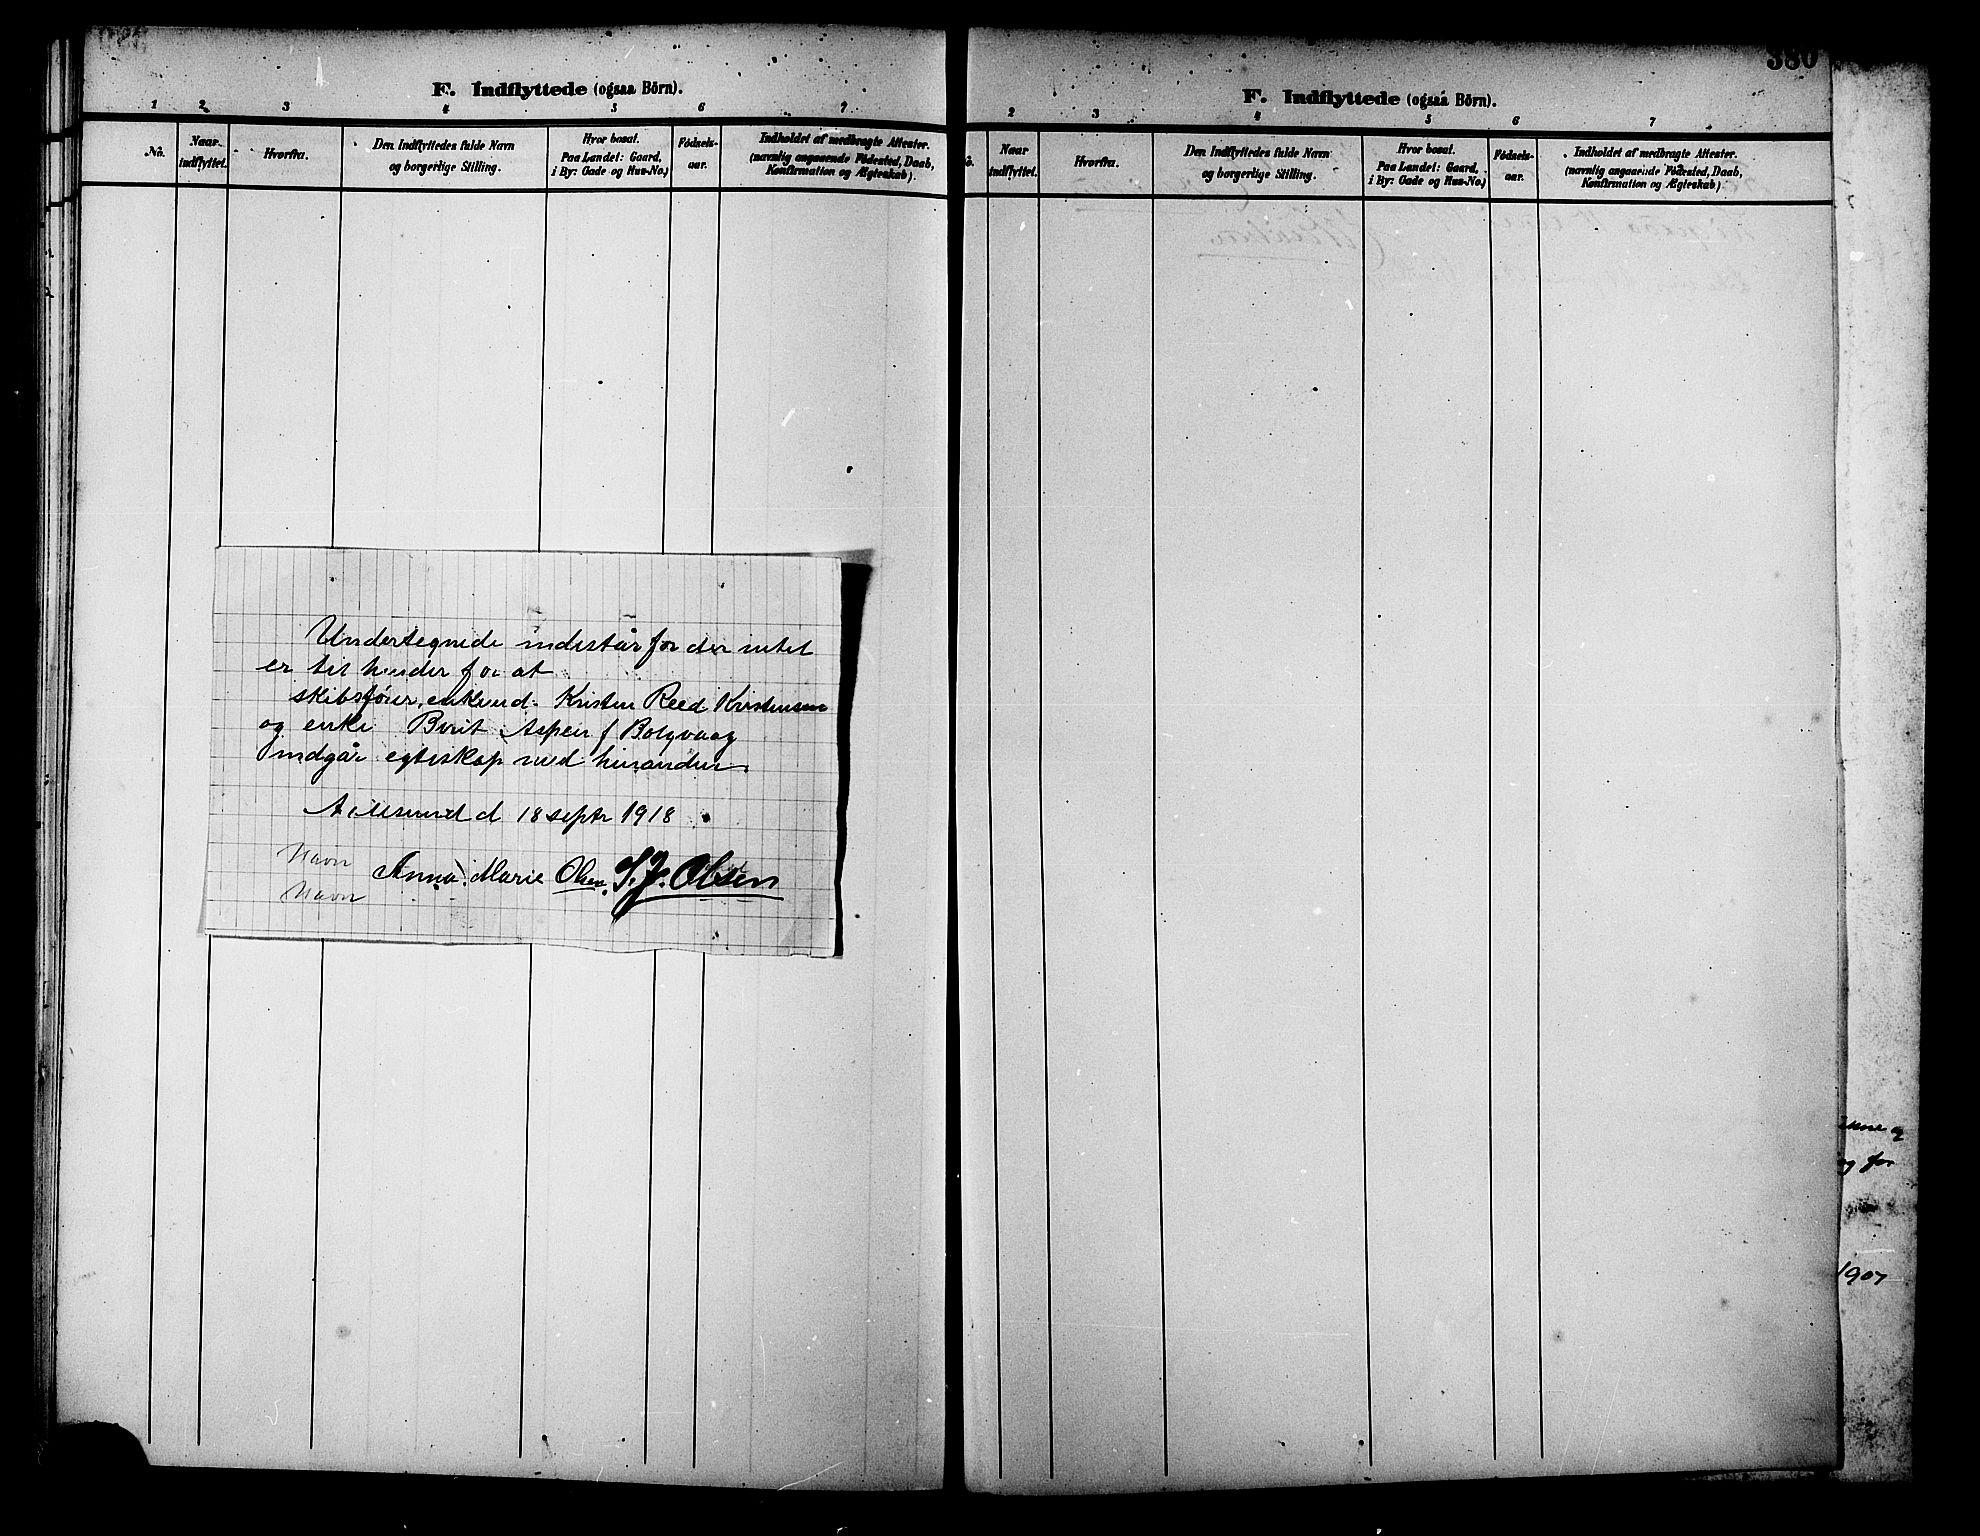 F. Indflyttede (ogsaa Börn).
1 2 3 4 5 6 7
No.
Naar indflyttet.
Hvorfra.
Den Indflyttedes fulde Navn
og borgerlige Stilling.
Hvor bosat.
Paa Landet: Gaard,
i By: Gade og Hus-No.)
Fødsels-
aar.
Indholdet af medbragte Attester.
(navnlig angaaende Födested, Daab,
Konfirmation og Ægteskab).
Undertegnede indestår for der intet
er til hinder for at
skibsfører, enkemd. Kristen Reed Kristensen
og enke Berit Aspen f Bolgvaag
indgår egteskap med hinanden.
Aalesund d 18 septr 1918
Navn
Anna Marie Olsen. S. J. Olsen
Navn
380
F. Indflyttede (ogsaa Börn).
2 3 4 5 6 7
Naar
indflyttet.
Hvorfra.
Den Indflyttedes fulde Navn
og borgerlige Stilling.
Hvor bosat.
Paa Landet: Gaard,
i By: Gade og Hus-No.)
Fødsels-
aar.
Indholdet af medbragte Attester.
(navnlig angaaende Födested, Daab,
Konfirmation og Ægteskab)
og for
1907